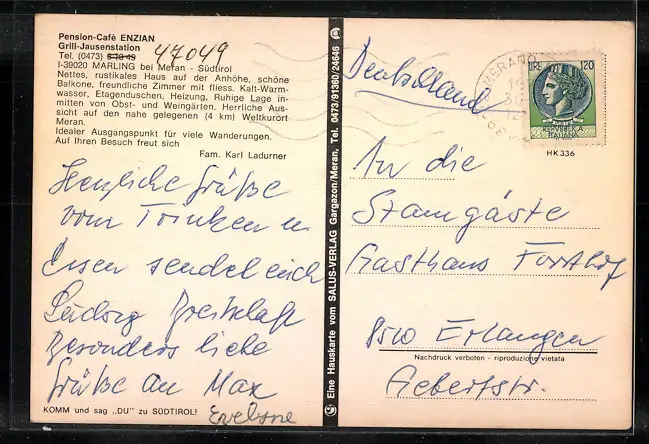 Pension-Cafè ENZIAN
Grill-Jausenstation
Tel. (0473) 47049
I-39020 MARLING bei Meran - Südtirol
Nettes, rustikales Haus auf der Anhöhe, schöne
Balkone, freundliche Zimmer mit fliess. Kalt-Warm-
wasser, Etagenduschen, Heizung, Ruhige Lage in-
mitten von Obst- und Weingärten. Herrliche Aus-
sicht auf den nahe gelegenen (4 km) Weltkurort
Meran.
Idealer Ausgangspunkt für viele Wanderungen.
Auf Ihren Besuch freut sich
Fam. Karl Ladurner
Herzliche Grüße
vom Trinken u
Essen sendet euch
Ludwig
Besonders liebe
Grüße an Max
Evelyne
KOMM und sag „DU" zu SÜDTIROL!
Eine Hauskarte vom SALUS-VERLAG Gargazon/Meran, Tel. 0473/91360/24646
Deutschland
MERANO
LIRE 120
REPUBBLICA
ITALIANA
HK 336
An die
Stamgäste
Gasthaus Forsthof
8520 Erlangen
Nachdruck verboten - riproduzione vietata
Gebertstr.